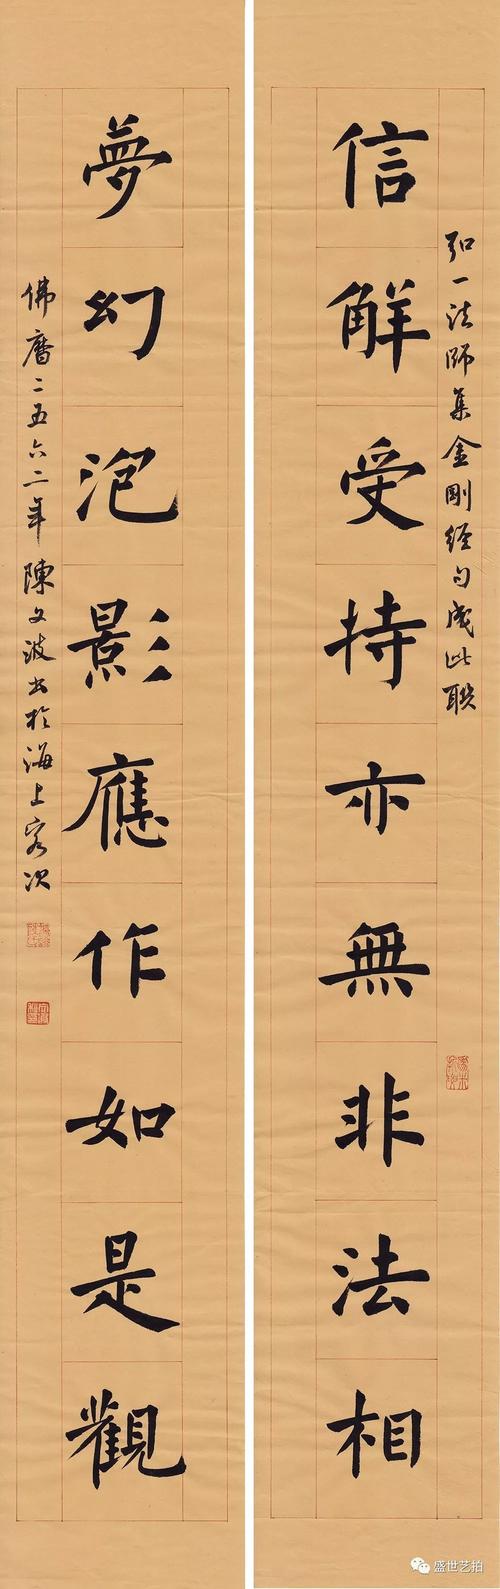 弘一法師集金剛經句成此联
信解受持亦無非法相
夢幻泡影應作如是觀
佛曆二五六二年陳文波書於海上客次
盛世艺拍